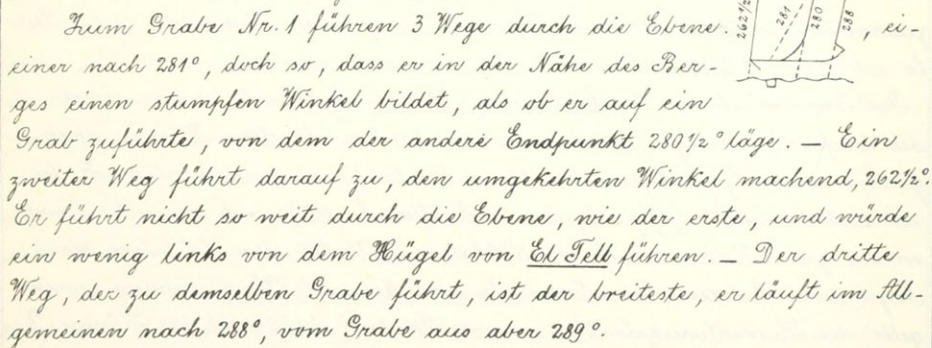 Zum Grabe Nr. 1 führen 3 Wege durch die Ebene. 262½ 281 280 288, ei-
einer nach 281°, doch so, dass er in der Nähe des Ber-
ges einen stumpfen Winkel bildet, als ob er auf ein
Grab zuführte, von dem der andere Endpunkt 280½° läge. — Ein
zweiter Weg führt darauf zu, den umgekehrten Winkel machend, 262½°.
Er führt nicht so weit durch die Ebene, wie der erste, und würde
ein wenig links von dem Hügel von El Tell führen. — Der dritte
Weg, der zu demselben Grabe führt, ist der breiteste, er läuft im All-
gemeinen nach 288°, vom Grabe aus aber 289°.